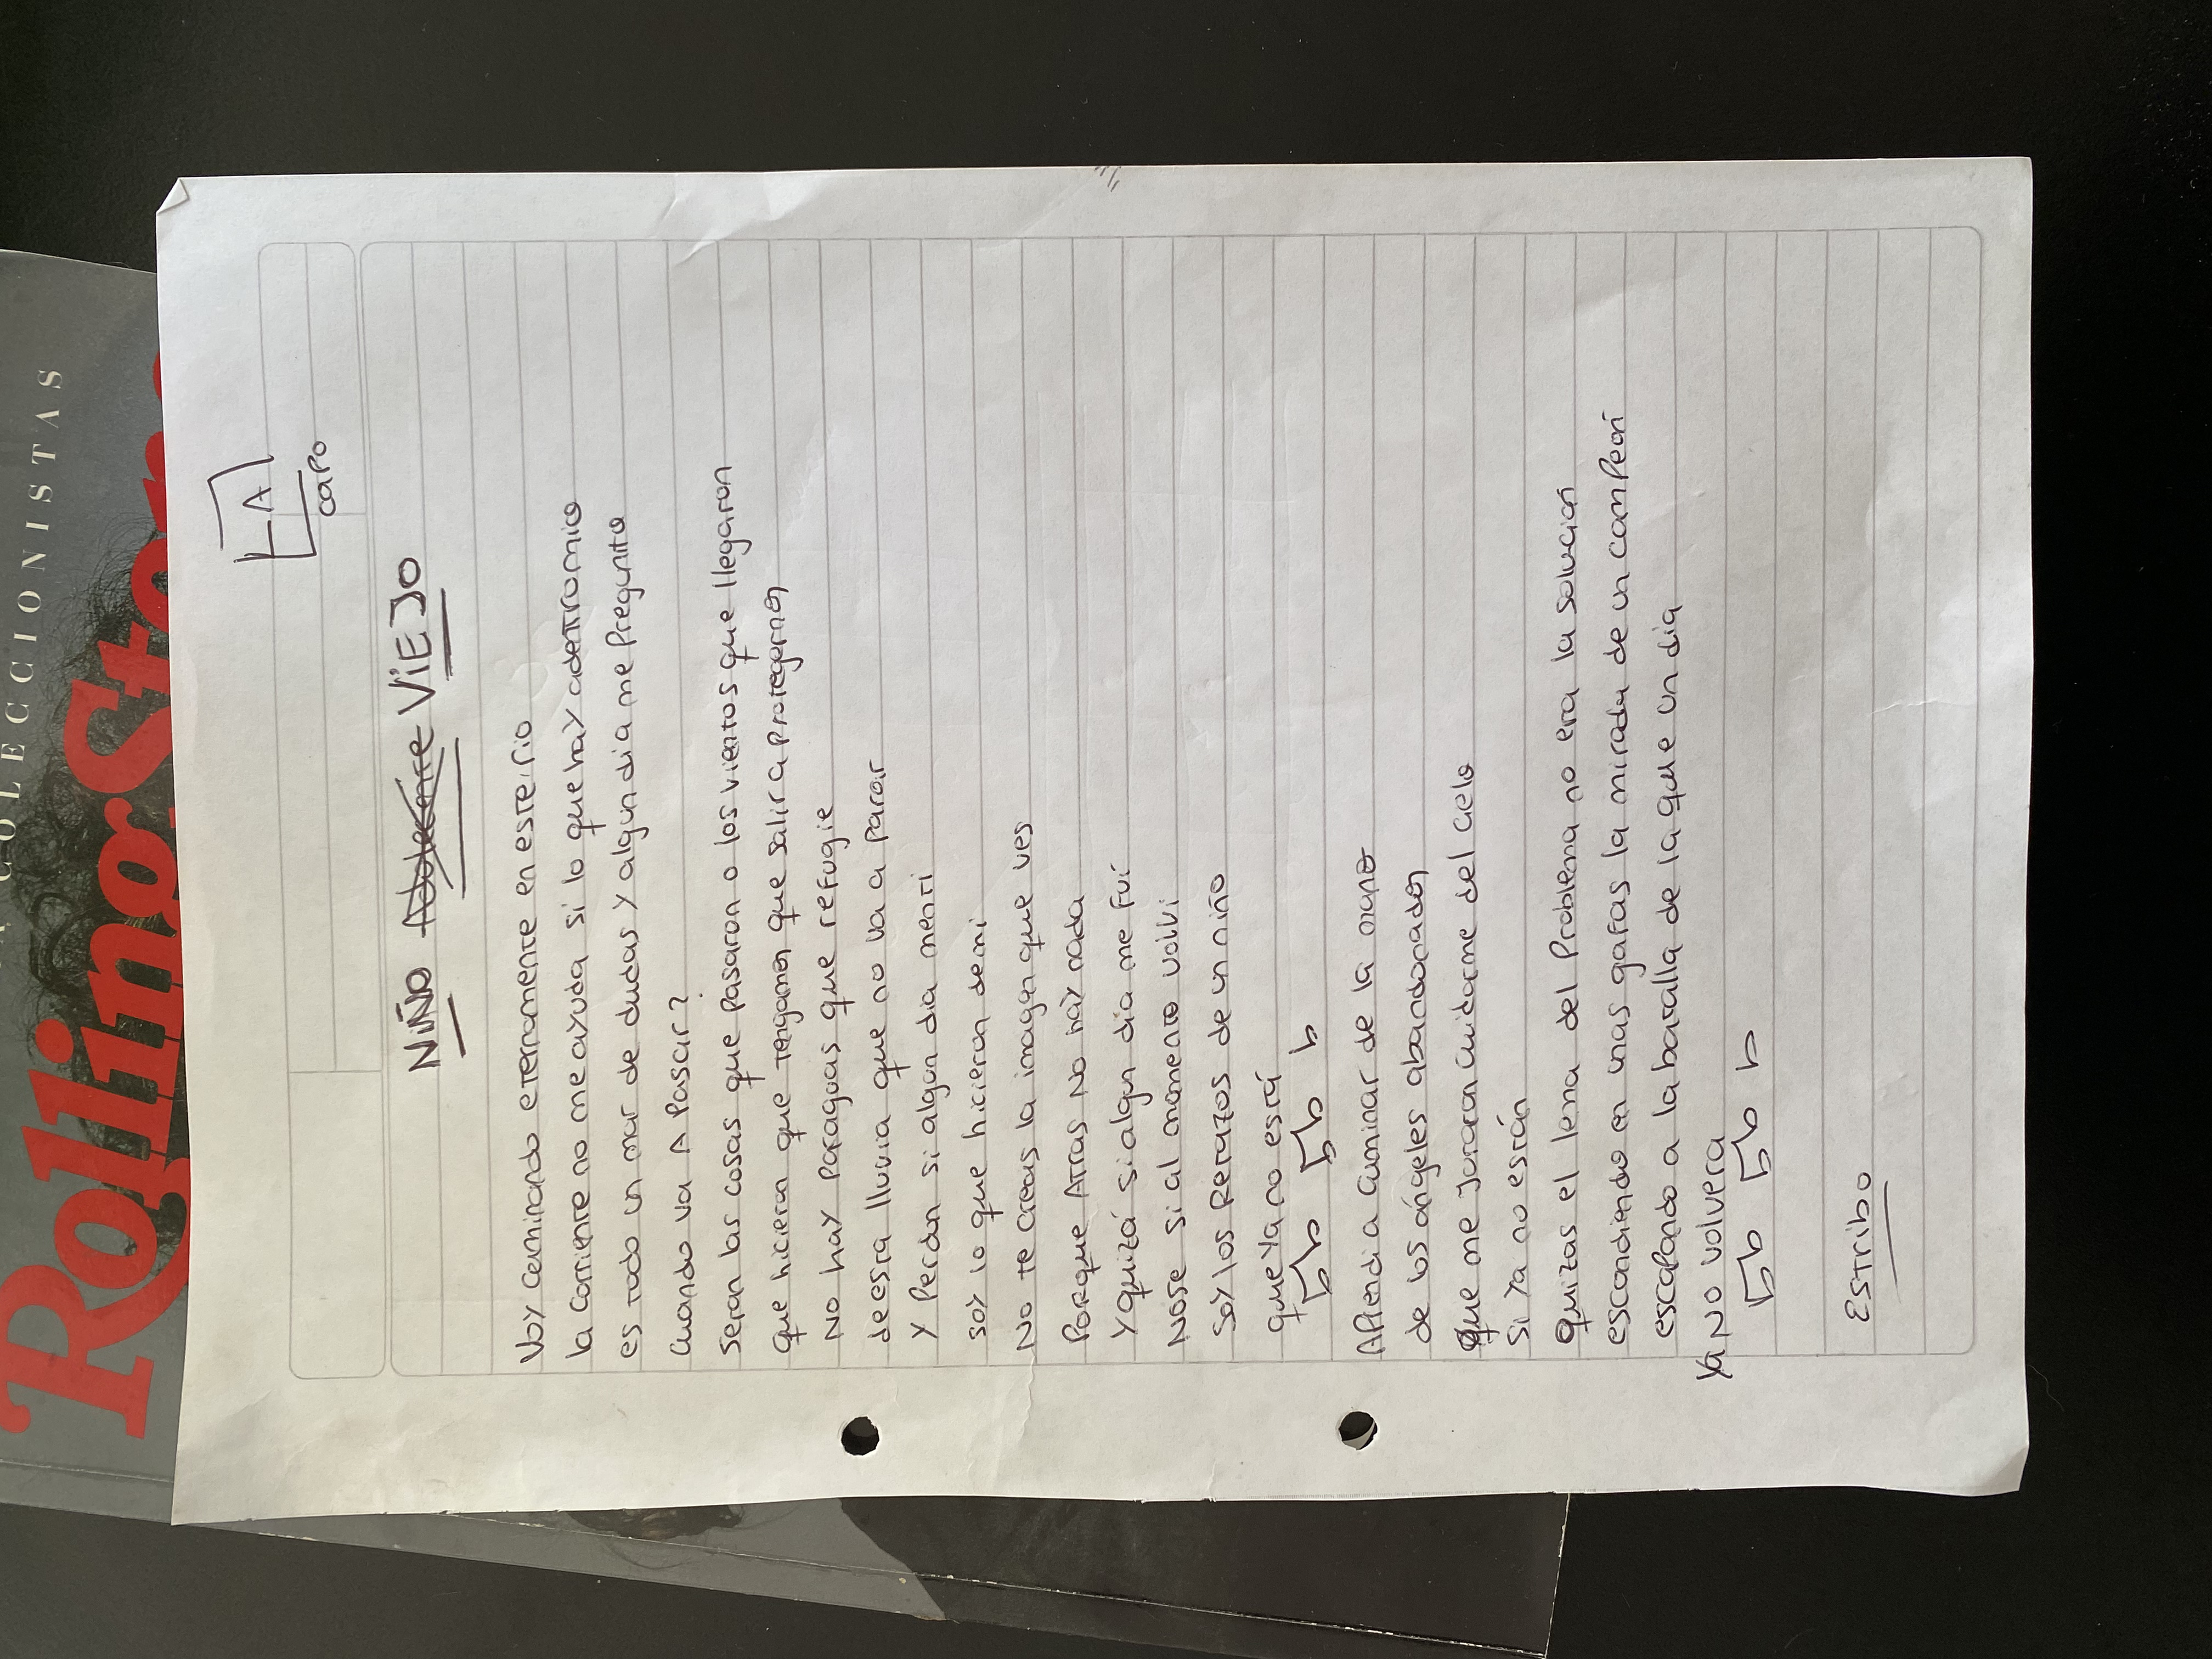 COLECCIONISTAS
Rolling Stone
LA
capo
NIÑO Adolecente VIEJO
Voy caminando eternamente en este rio
la corriente no me ayuda si lo que hay adentro mio
es todo un mar de dudas y algun dia me pregunto
cuando va A Pasar?
Seran las cosas que pasaron o los vientos que llegaron
que hicieron que tengamos que salir a protegernos
No hay paraguas que refugie
de esta lluvia que no va a parar
Y Perdon si algun dia menti
soy lo que hicieron de mi
No te creas la imagen que ves
Porque Atras No hay nada
Y quizá si algun dia me fuí
Nose si al momento volvi
Soy los Retazos de un niño
que ya no está
Aprendi a caminar de la mano
de los ángeles abandonados
Que me Juraron cuidarme del cielo
Si ya no están
Quizas el lema del Problema no era la solución
escondiendo en unas gafas la mirada de un campeón
escapando a la batalla de la que un dia
Ya No volvera
Estribo